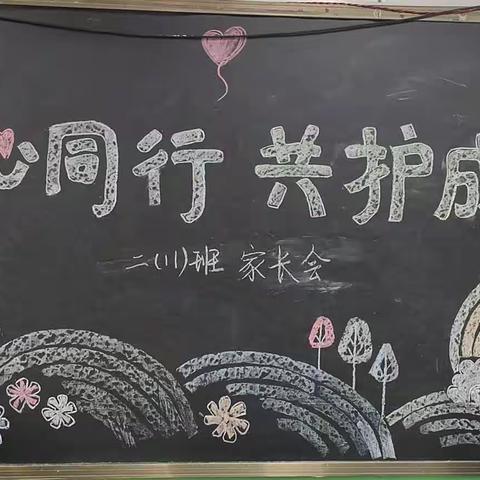 心同行 共护成
二(11)班 家长会